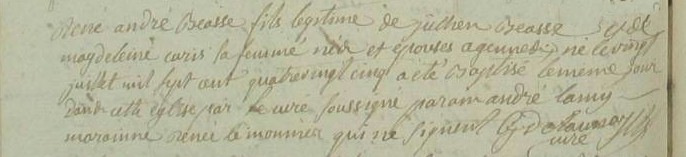 René andré Beasse fils legitime de julien Beasse et de
magdeleine caris sa femme nés et epouses a gennes né le vingt
juillet mil sept cent quatrevingt cinq a eté Baptisé le meme jour
dans cette eglise par le curé soussigné parain andré lamy
marainne renée lemonnier qui ne signent
curé